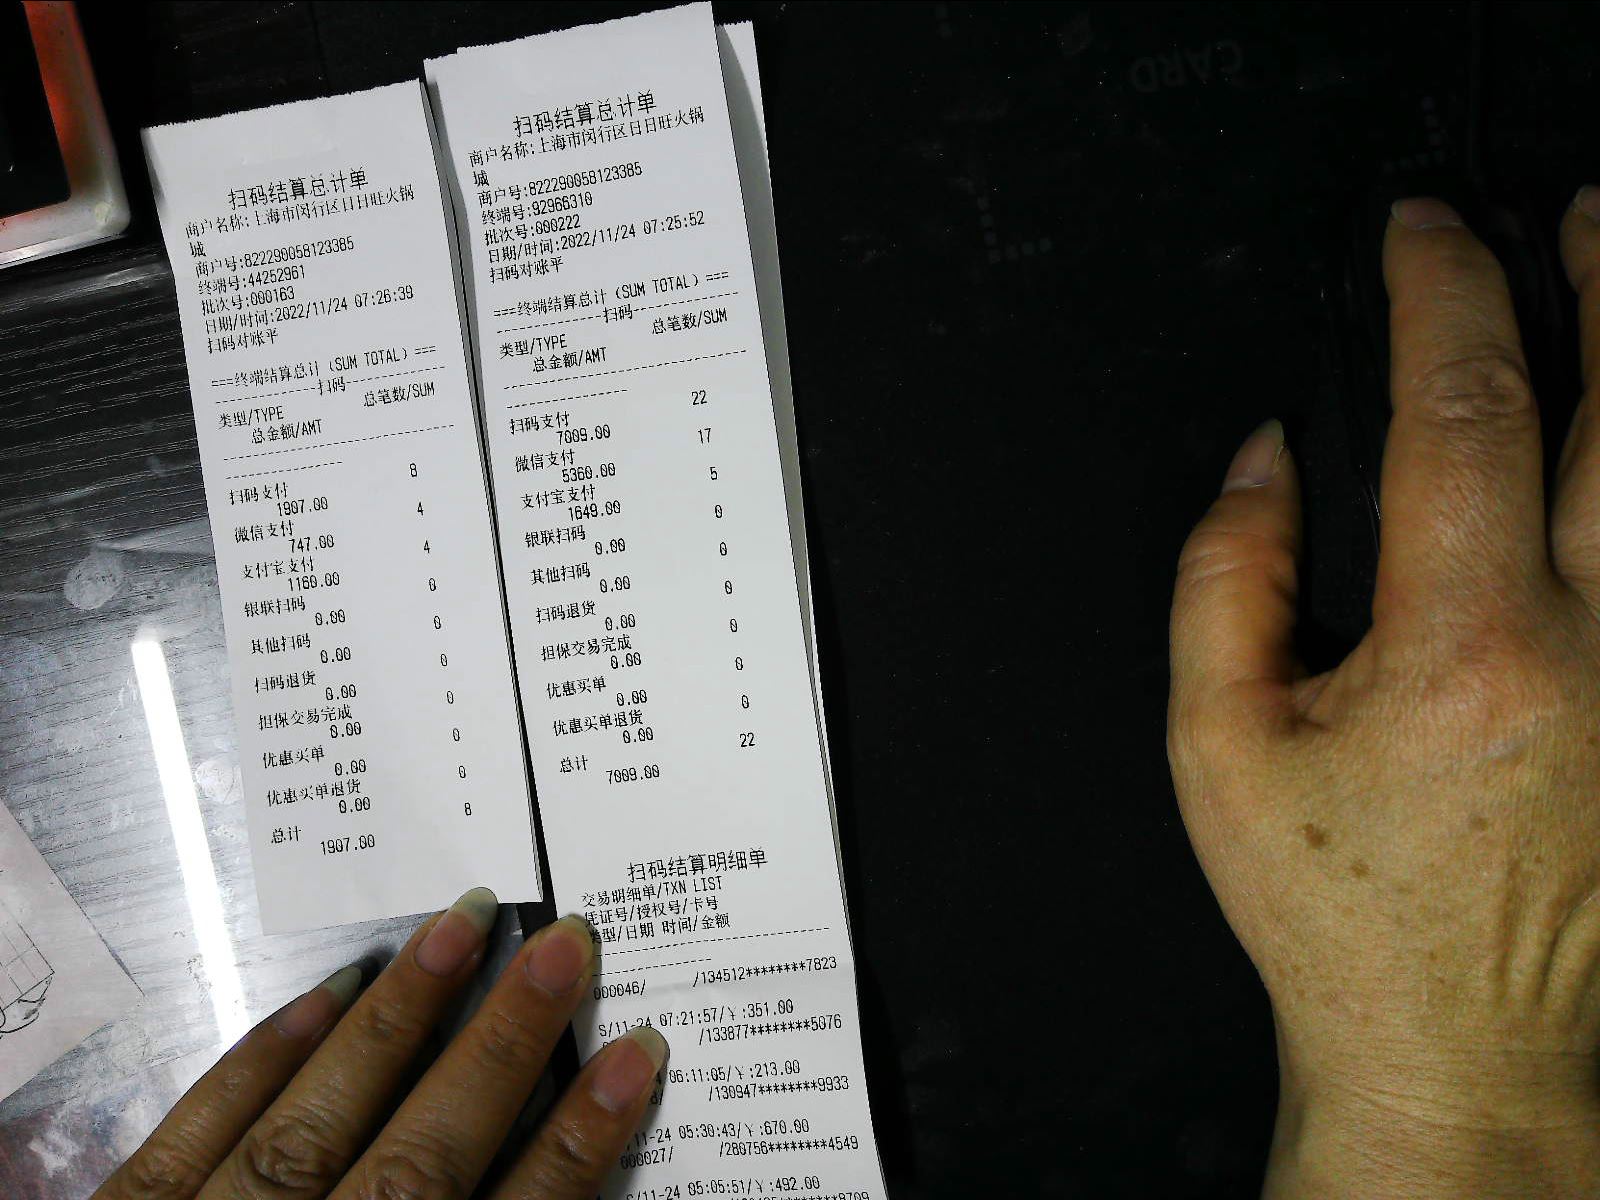 扫码结算总计单
商户名称:上海市闵行区日日旺火锅
城
商户号:822290058123385
终端号:44252961
批次号:000163
日期/时间:2022/11/24 07:26:39
扫码对账平
===终端结算总计(SUM TOTAL)===
----------------扫码----------------
类型/TYPE 总笔数/SUM
总金额/AMT
扫码支付 8
1907.00
微信支付 4
747.00
支付宝支付 4
1160.00
银联扫码 0
0.00
其他扫码 0
0.00
扫码退货 0
0.00
担保交易完成 0
0.00
优惠买单 0
0.00
优惠买单退货 0
0.00
总计 8
1907.00
扫码结算总计单
商户名称:上海市闵行区日日旺火锅
城
商户号:822290058123385
终端号:92966310
批次号:000222
日期/时间:2022/11/24 07:25:52
扫码对账平
===终端结算总计(SUM TOTAL)===
----------------扫码----------------
类型/TYPE 总笔数/SUM
总金额/AMT
扫码支付 22
7009.00
微信支付 17
5360.00
支付宝支付 5
1649.00
银联扫码 0
0.00
其他扫码 0
0.00
扫码退货 0
0.00
担保交易完成 0
0.00
优惠买单 0
0.00
优惠买单退货 0
0.00
总计 22
7009.00
扫码结算明细单
交易明细单/TXN LIST
凭证号/授权号/卡号
类型/日期 时间/金额
000046/ /134512********7823
S/11-24 07:21:57/¥:351.00
/133877********5076
06:11:05/¥:213.00
/130947********9933
11-24 05:30:43/¥:670.00
000027/ /280756********4549
S/11-24 05:05:51/¥:492.00
CARD